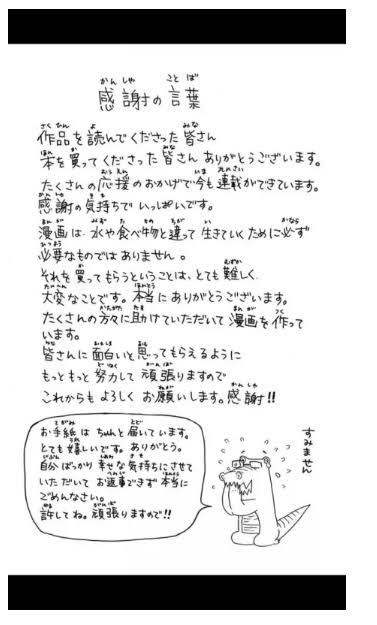 感謝の言葉
作品を読んでくださった皆さん
本を買ってくださった皆さんありがとうございます。
たくさんの応援のおかげで今も連載ができています。
感謝の気持ちでいっぱいです。
漫画は、水や食べ物と違って生きていくために必ず
必要なものではありません。
それを買ってもらうということは、とても難しく、
大変なことです。本当にありがとうございます。
たくさんの方々に助けていただいて漫画を作って
います。
皆さんに面白いと思ってもらえるように
もっともっと努力して頑張りますので
これからもよろしくお願いします。感謝!!
お手紙はちゃんと届いています。
とても嬉しいです。ありがとう。
自分ばっかり幸せな気持ちにさせて
いただいてお返事できず本当に
ごめんなさい。
許してね。頑張りますので!!
すみません